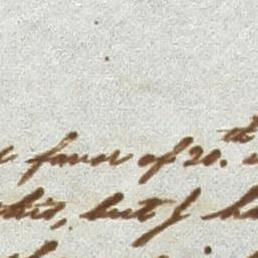 favor of 20.th
this, but I